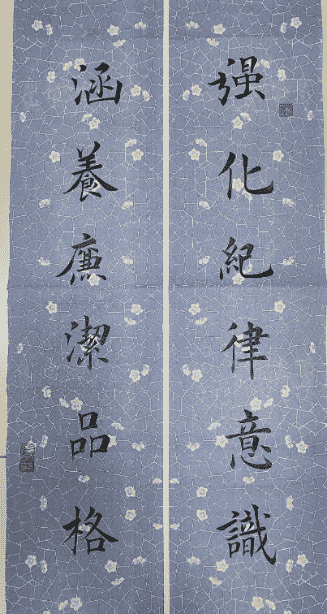 强化紀律意識
涵養廉潔品格